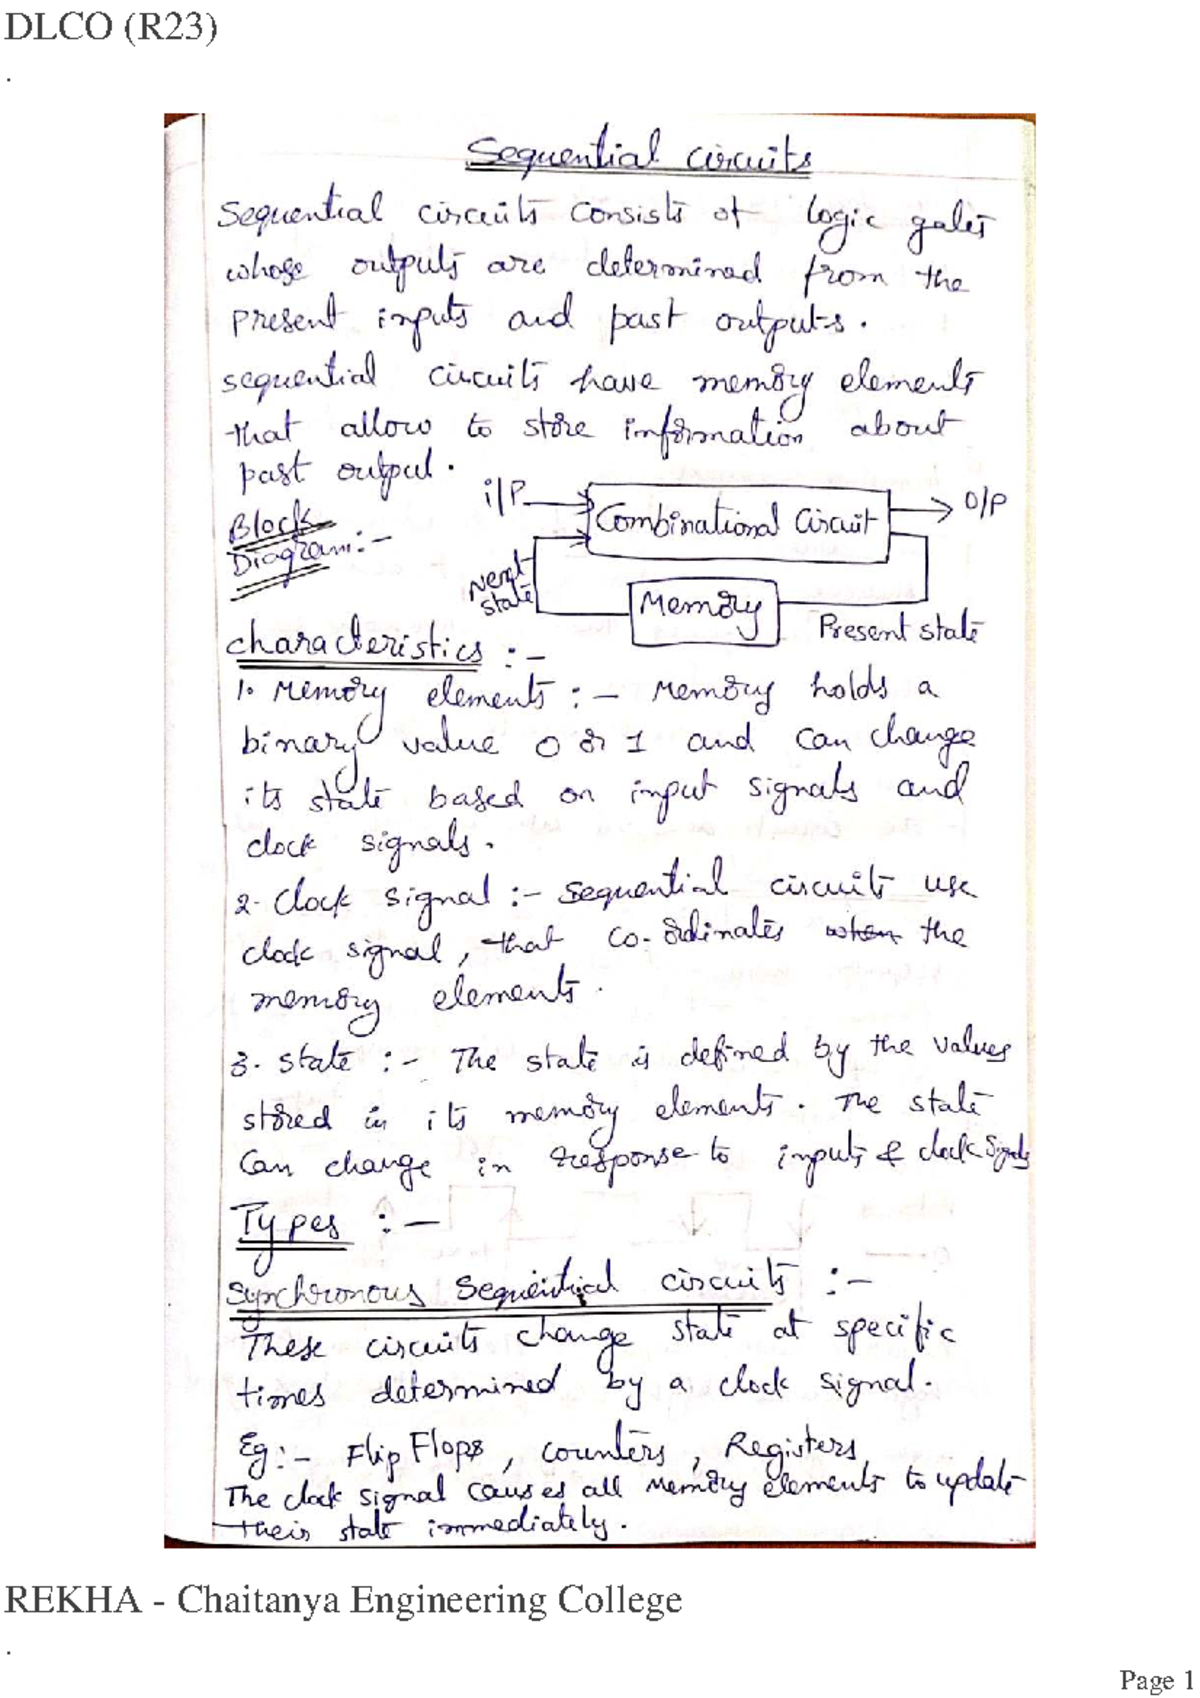 DLCO (R23)
.
Sequential circuits
Sequential circuits consists of logic gates
whose outputs are determined from the
present inputs and past outputs.
sequential circuits have memory elements
that allow to store information about
past output.
Block
Diagram:-
i/P
Combinational Circuit
O/P
Next
state
Memory
Present state
characteristics :-
1. Memory elements :- Memory holds a
binary value 0 or 1 and can change
its state based on input signals and
clock signals.
2. Clock signal :- Sequential circuits use
clock signal, that co-ordinates when the
memory elements.
3. state :- The state is defined by the values
stored in its memory elements. The state
can change in response to inputs & clock signals
Types :-
Synchronous Sequential circuits :-
These circuits change state at specific
times determined by a clock signal.
Eg:- Flip Flops, counters, Registers,
The clock signal causes all memory elements to update
their state immediately.
REKHA - Chaitanya Engineering College
.
Page 1